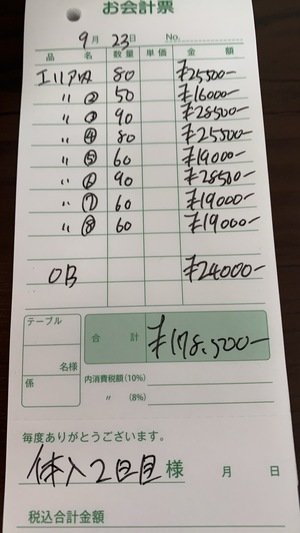 お会計票
9月 23日 No.
品 名 数量 単価 金 額
エリアアロマ 80 ¥25500-
〃 ② 50 ¥16000-
〃 ③ 90 ¥28500-
〃 ④ 80 ¥25500-
〃 ⑤ 60 ¥19000-
〃 ⑥ 90 ¥28500-
〃 ⑦ 60 ¥19000-
〃 ⑧ 60 ¥19000-
OB ¥24000-
テーブル
名様
係
合 計 ¥178.500-
内消費税額(10%)
〃 (8%)
毎度ありがとうございます。
体入2日目 様 月 日
税込合計金額